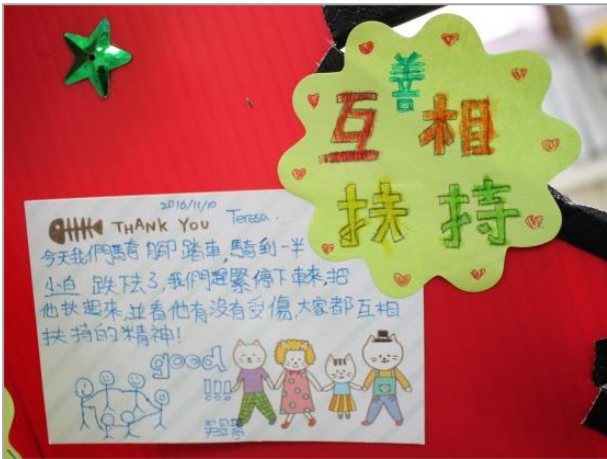 善
互相
扶持
2016/11/10
THANK YOU Teresa.
今天我們騎腳踏車,騎到一半
小白跌下去了,我們趕緊停下車來,把
他扶起來,並看他有沒有受傷,大家都互相
扶持的精神!
good
!!!